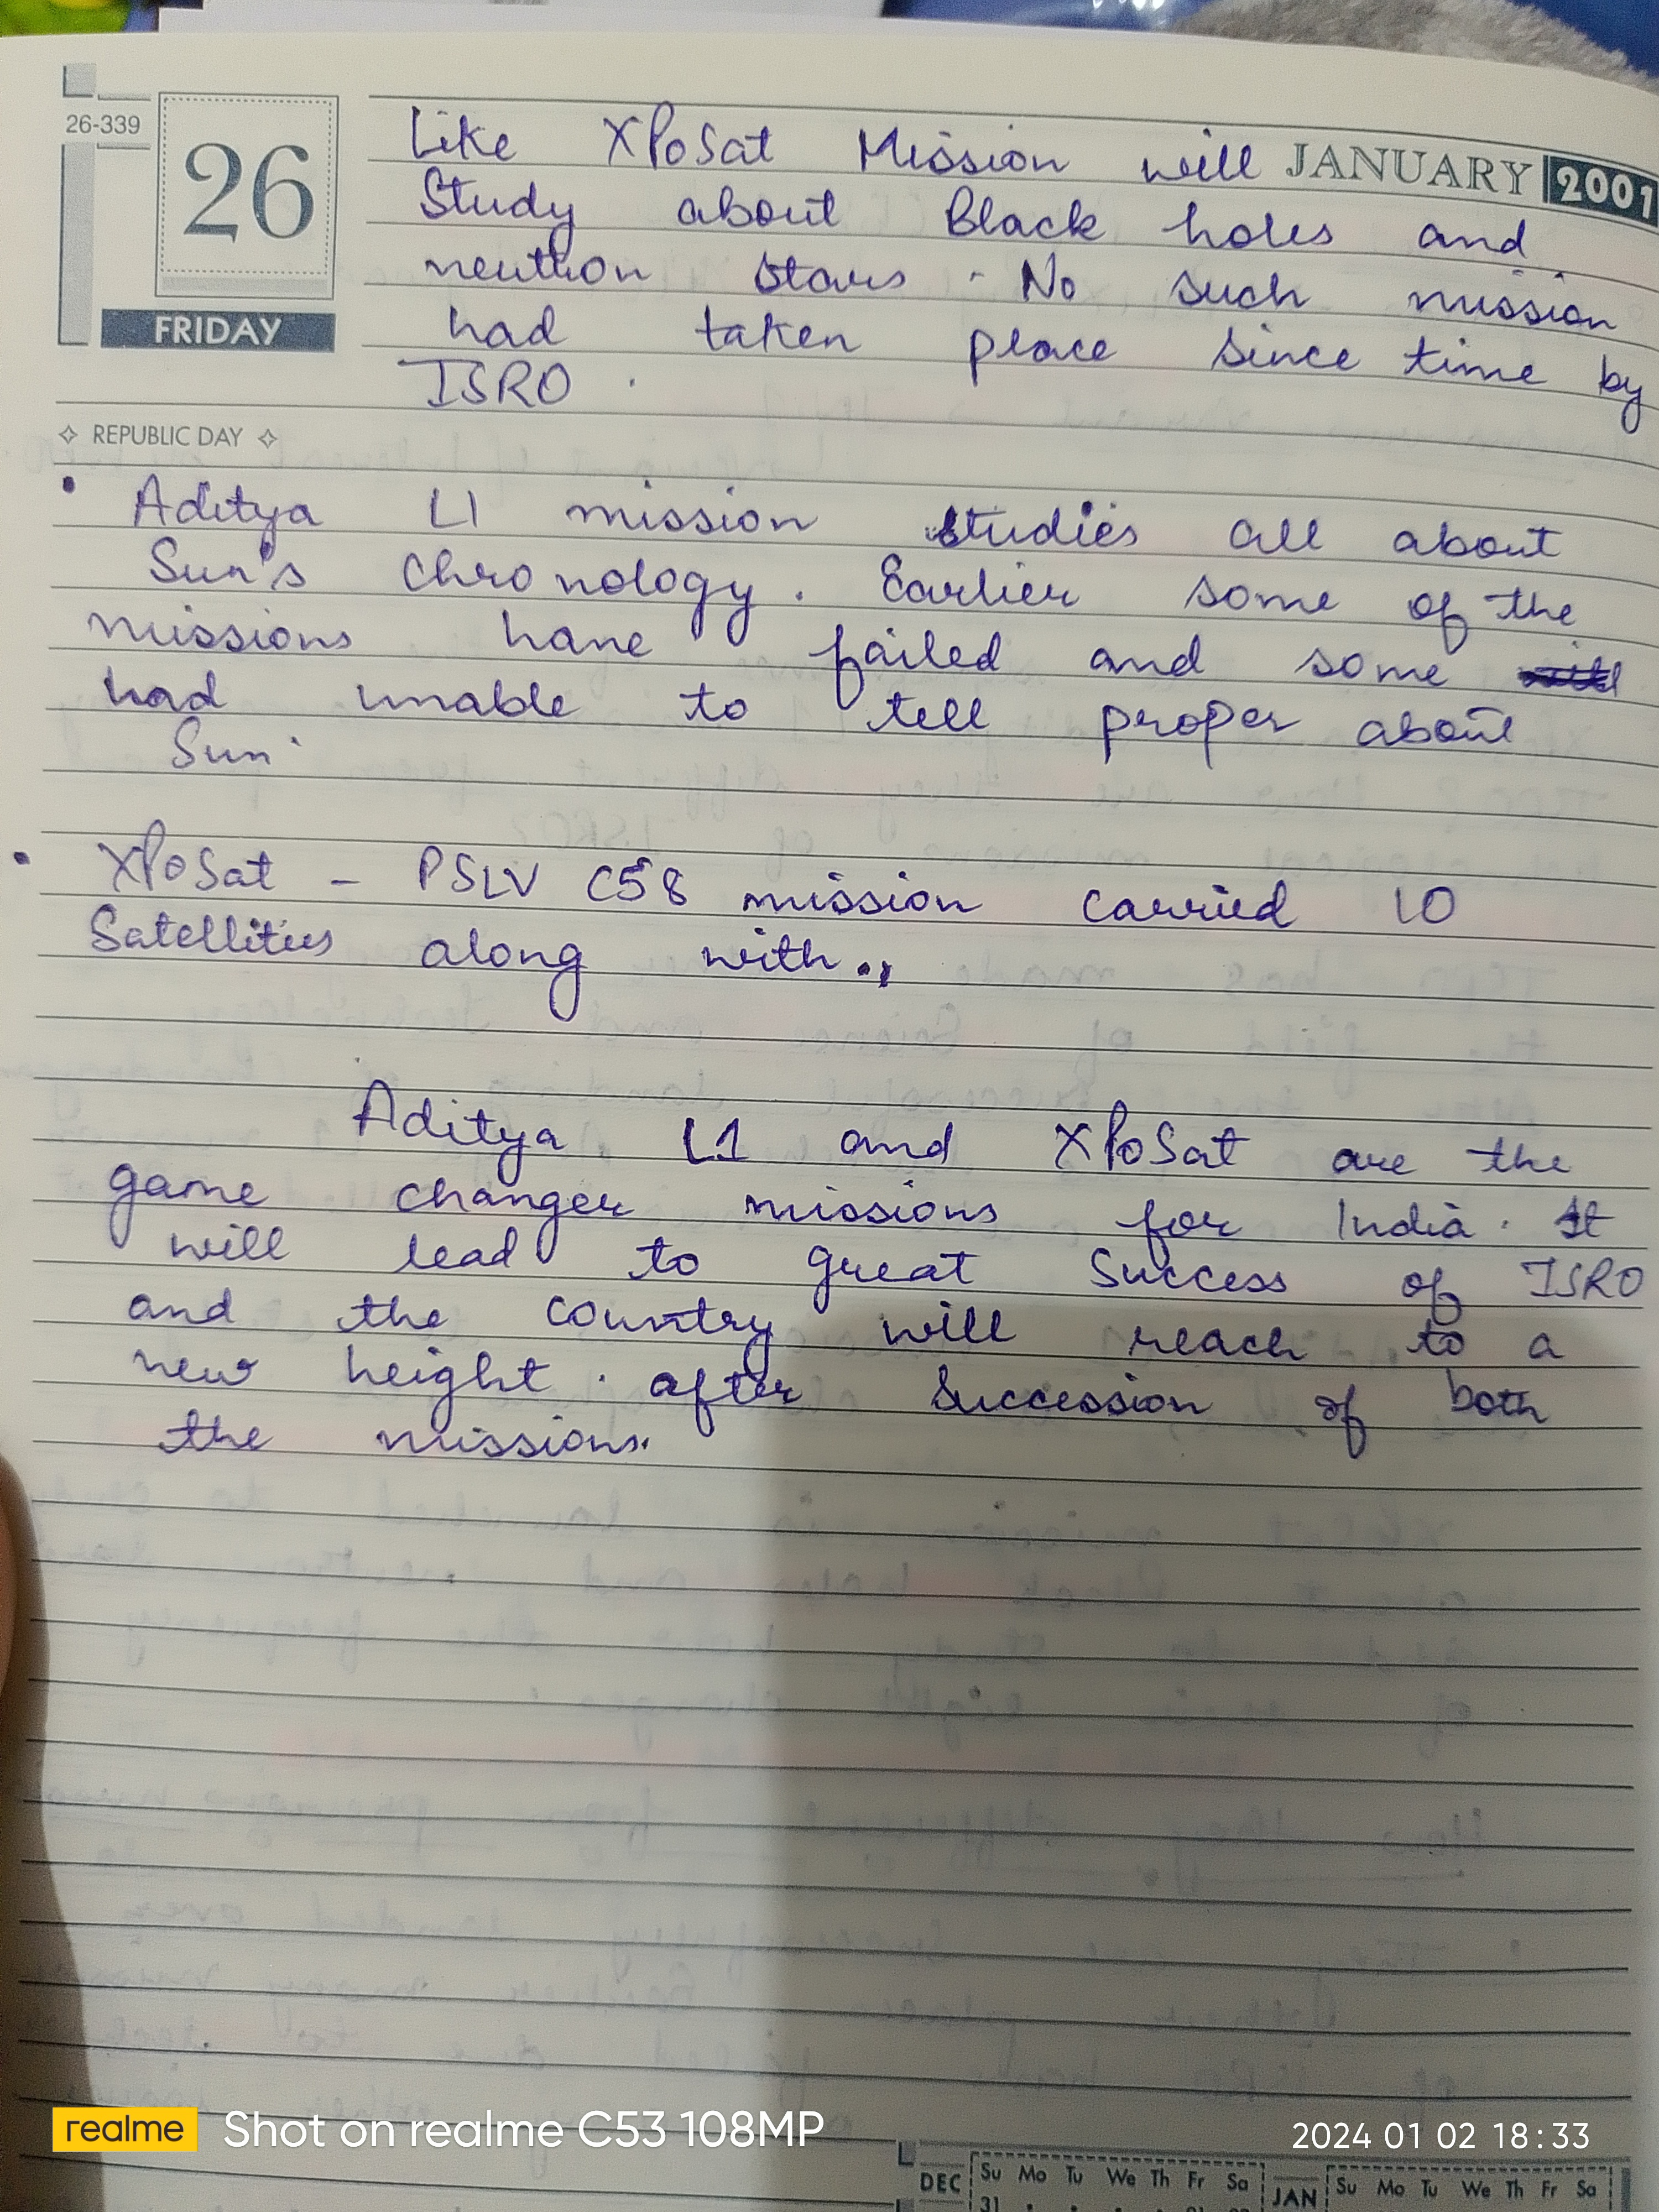 26-339
26
FRIDAY
JANUARY 2001
Like XPoSat Mission will
Study about Black holes and
neutron stars. No such mission
had taken place since time by
ISRO.
REPUBLIC DAY
• Aditya L1 mission studies all about
Sun's chronology. Earlier some of the
missions have failed and some
had unable to tell proper about
Sun.
• XPoSat - PSLV C58 mission carried 10
Satellities along with.,
Aditya L1 and XPoSat are the
game changer missions for India. It
will lead to great Success of ISRO
and the country will reach to a
new height. after Succession of both
the missions.
realme Shot on realme C53 108MP
2024 01 02 18:33
DEC Su Mo Tu We Th Fr Sa JAN Su Mo Tu We Th Fr Sa
31